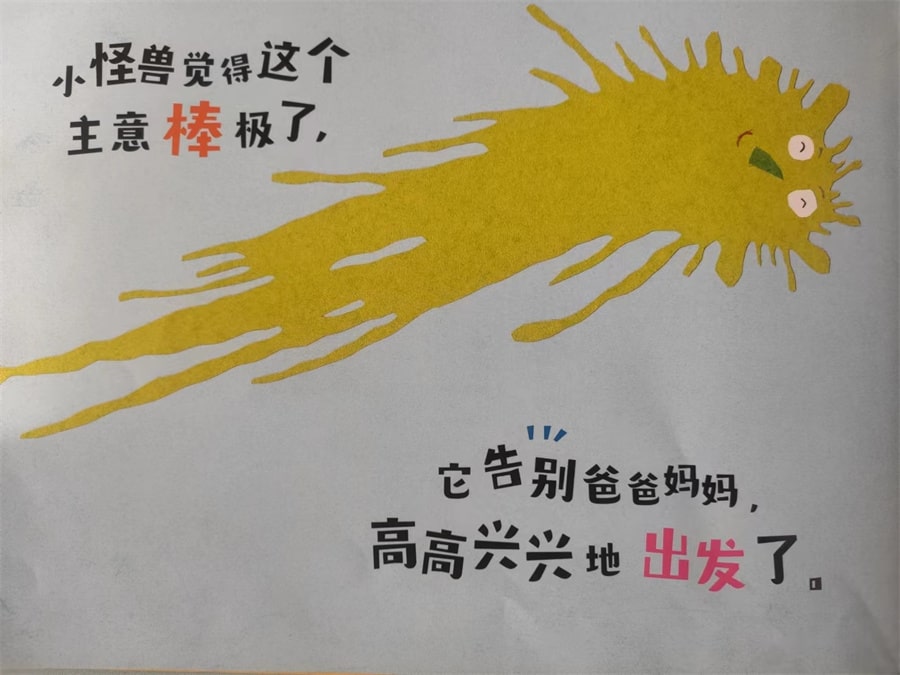 小怪兽觉得这个
主意棒极了,
它告别爸爸妈妈,
高高兴兴地出发了。